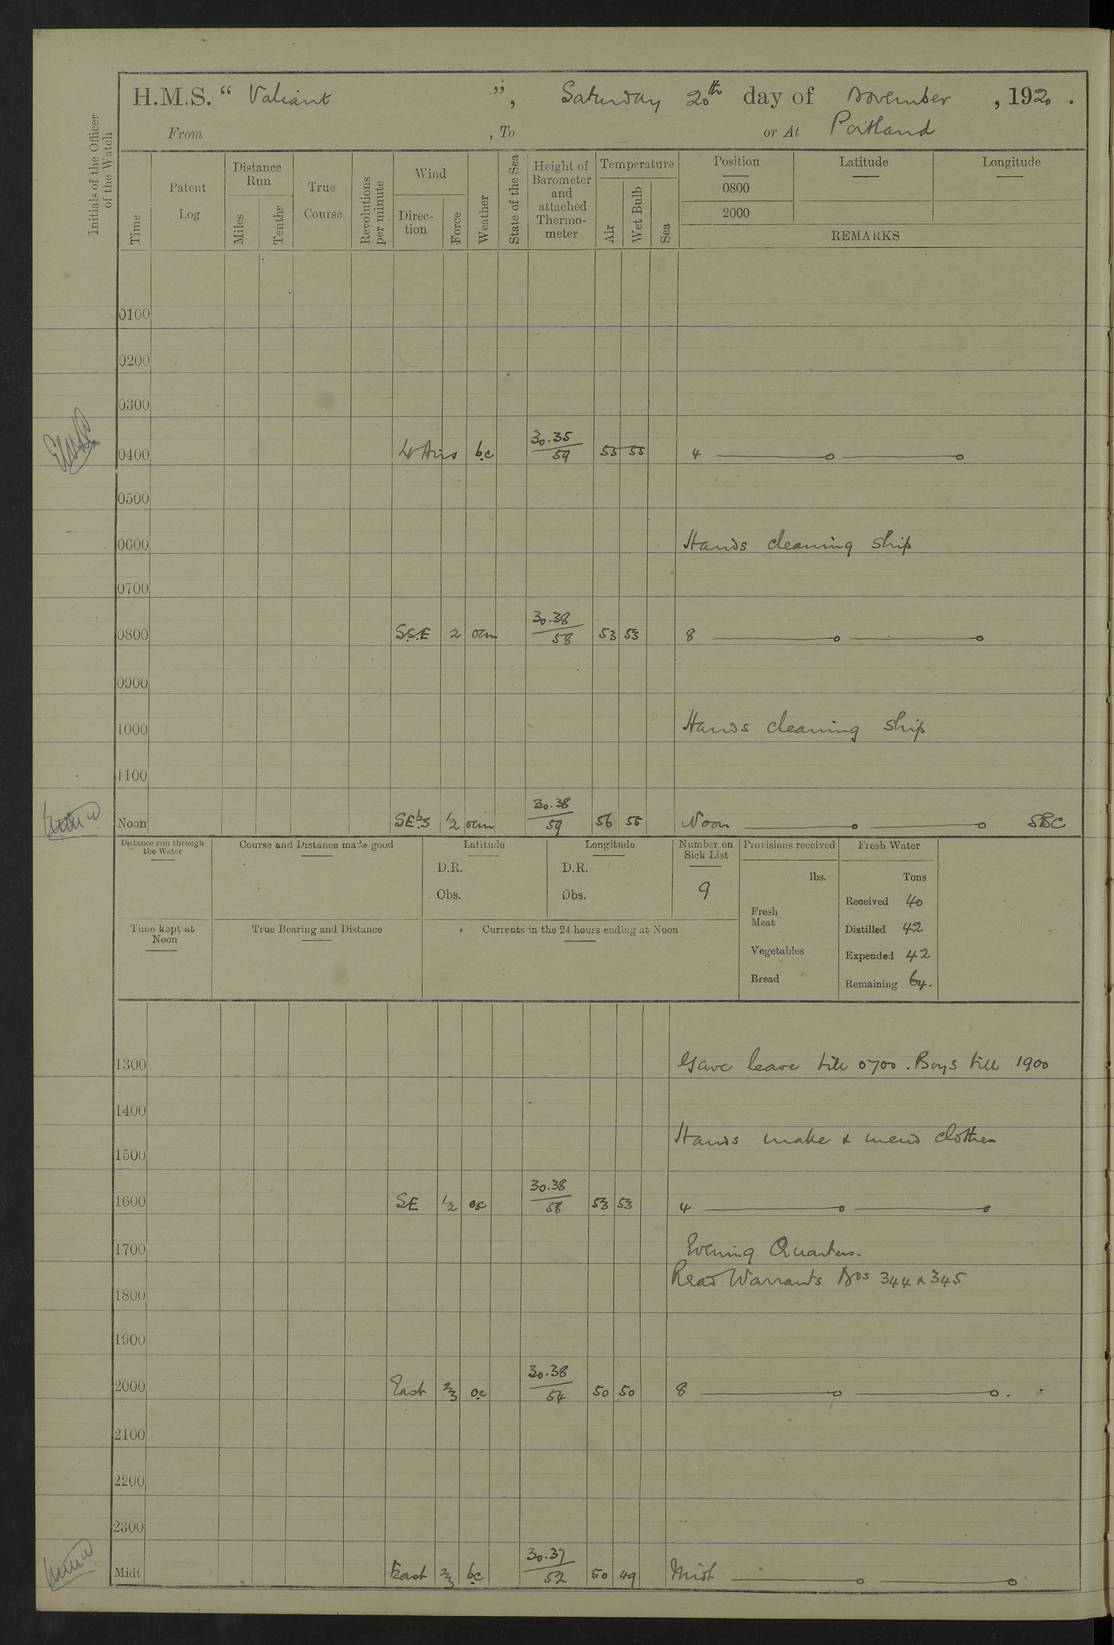 H.M.S. “ Valiant ”, Saturday 20th day of November, 1920.
From , To or At Portland
Initials of the Officer of the Watch
Time
Patent Log
Distance Run
Miles
Tenths
True Course
Revolutions per minute
Wind
Direc-tion
Force
Weather
State of the Sea
Height of Barometer and attached Thermo-meter
Temperature
Air
Wet Bulb
Sea
Position Latitude Longitude
0800
2000
REMARKS
0100
0200
0300
0400 Lt Airs bc 30.35/59 55 55 4
0500
0600 Hands cleaning ship
0700
0800 S.S.E 2 om 30.38/58 53 53 8
0900
1000 Hands cleaning ship
1100
Noon SEbS 1/2 30.38/59 56 55 Noon SBC
Distance run through the Water
Course and Distance made good
Latitude
D.R.
Obs.
Longitude
D.R.
Obs.
Number on Sick List
9
Provisions received
lbs.
Fresh Meat
Vegetables
Bread
Fresh Water
Tons
Received 40
Distilled 42
Expended 42
Remaining 64.
Time kept at Noon
True Bearing and Distance
Currents in the 24 hours ending at Noon
1300 Gave leave till 0700. Boys till 1900
1400
Hands make & mend clothes
1500
1600 SE 1/2 oc 30.38/58 53 53 4
1700 Evening Quarters.
Read Warrants Nos 344 & 345
1800
1900
2000 East 2/3 oc 30.38/54 50 50 8
2100
2200
2300
Midt East 2/3 bc 30.37/52 50 49 Midt